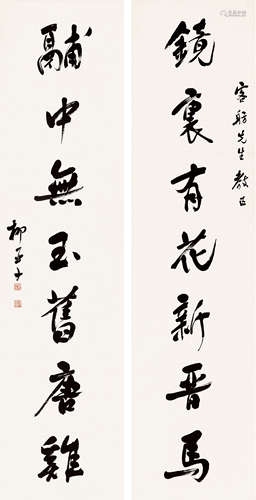 舫先生教正
鏡裏有花新晋馬
鬴中無玉舊唐雞
柳亞子